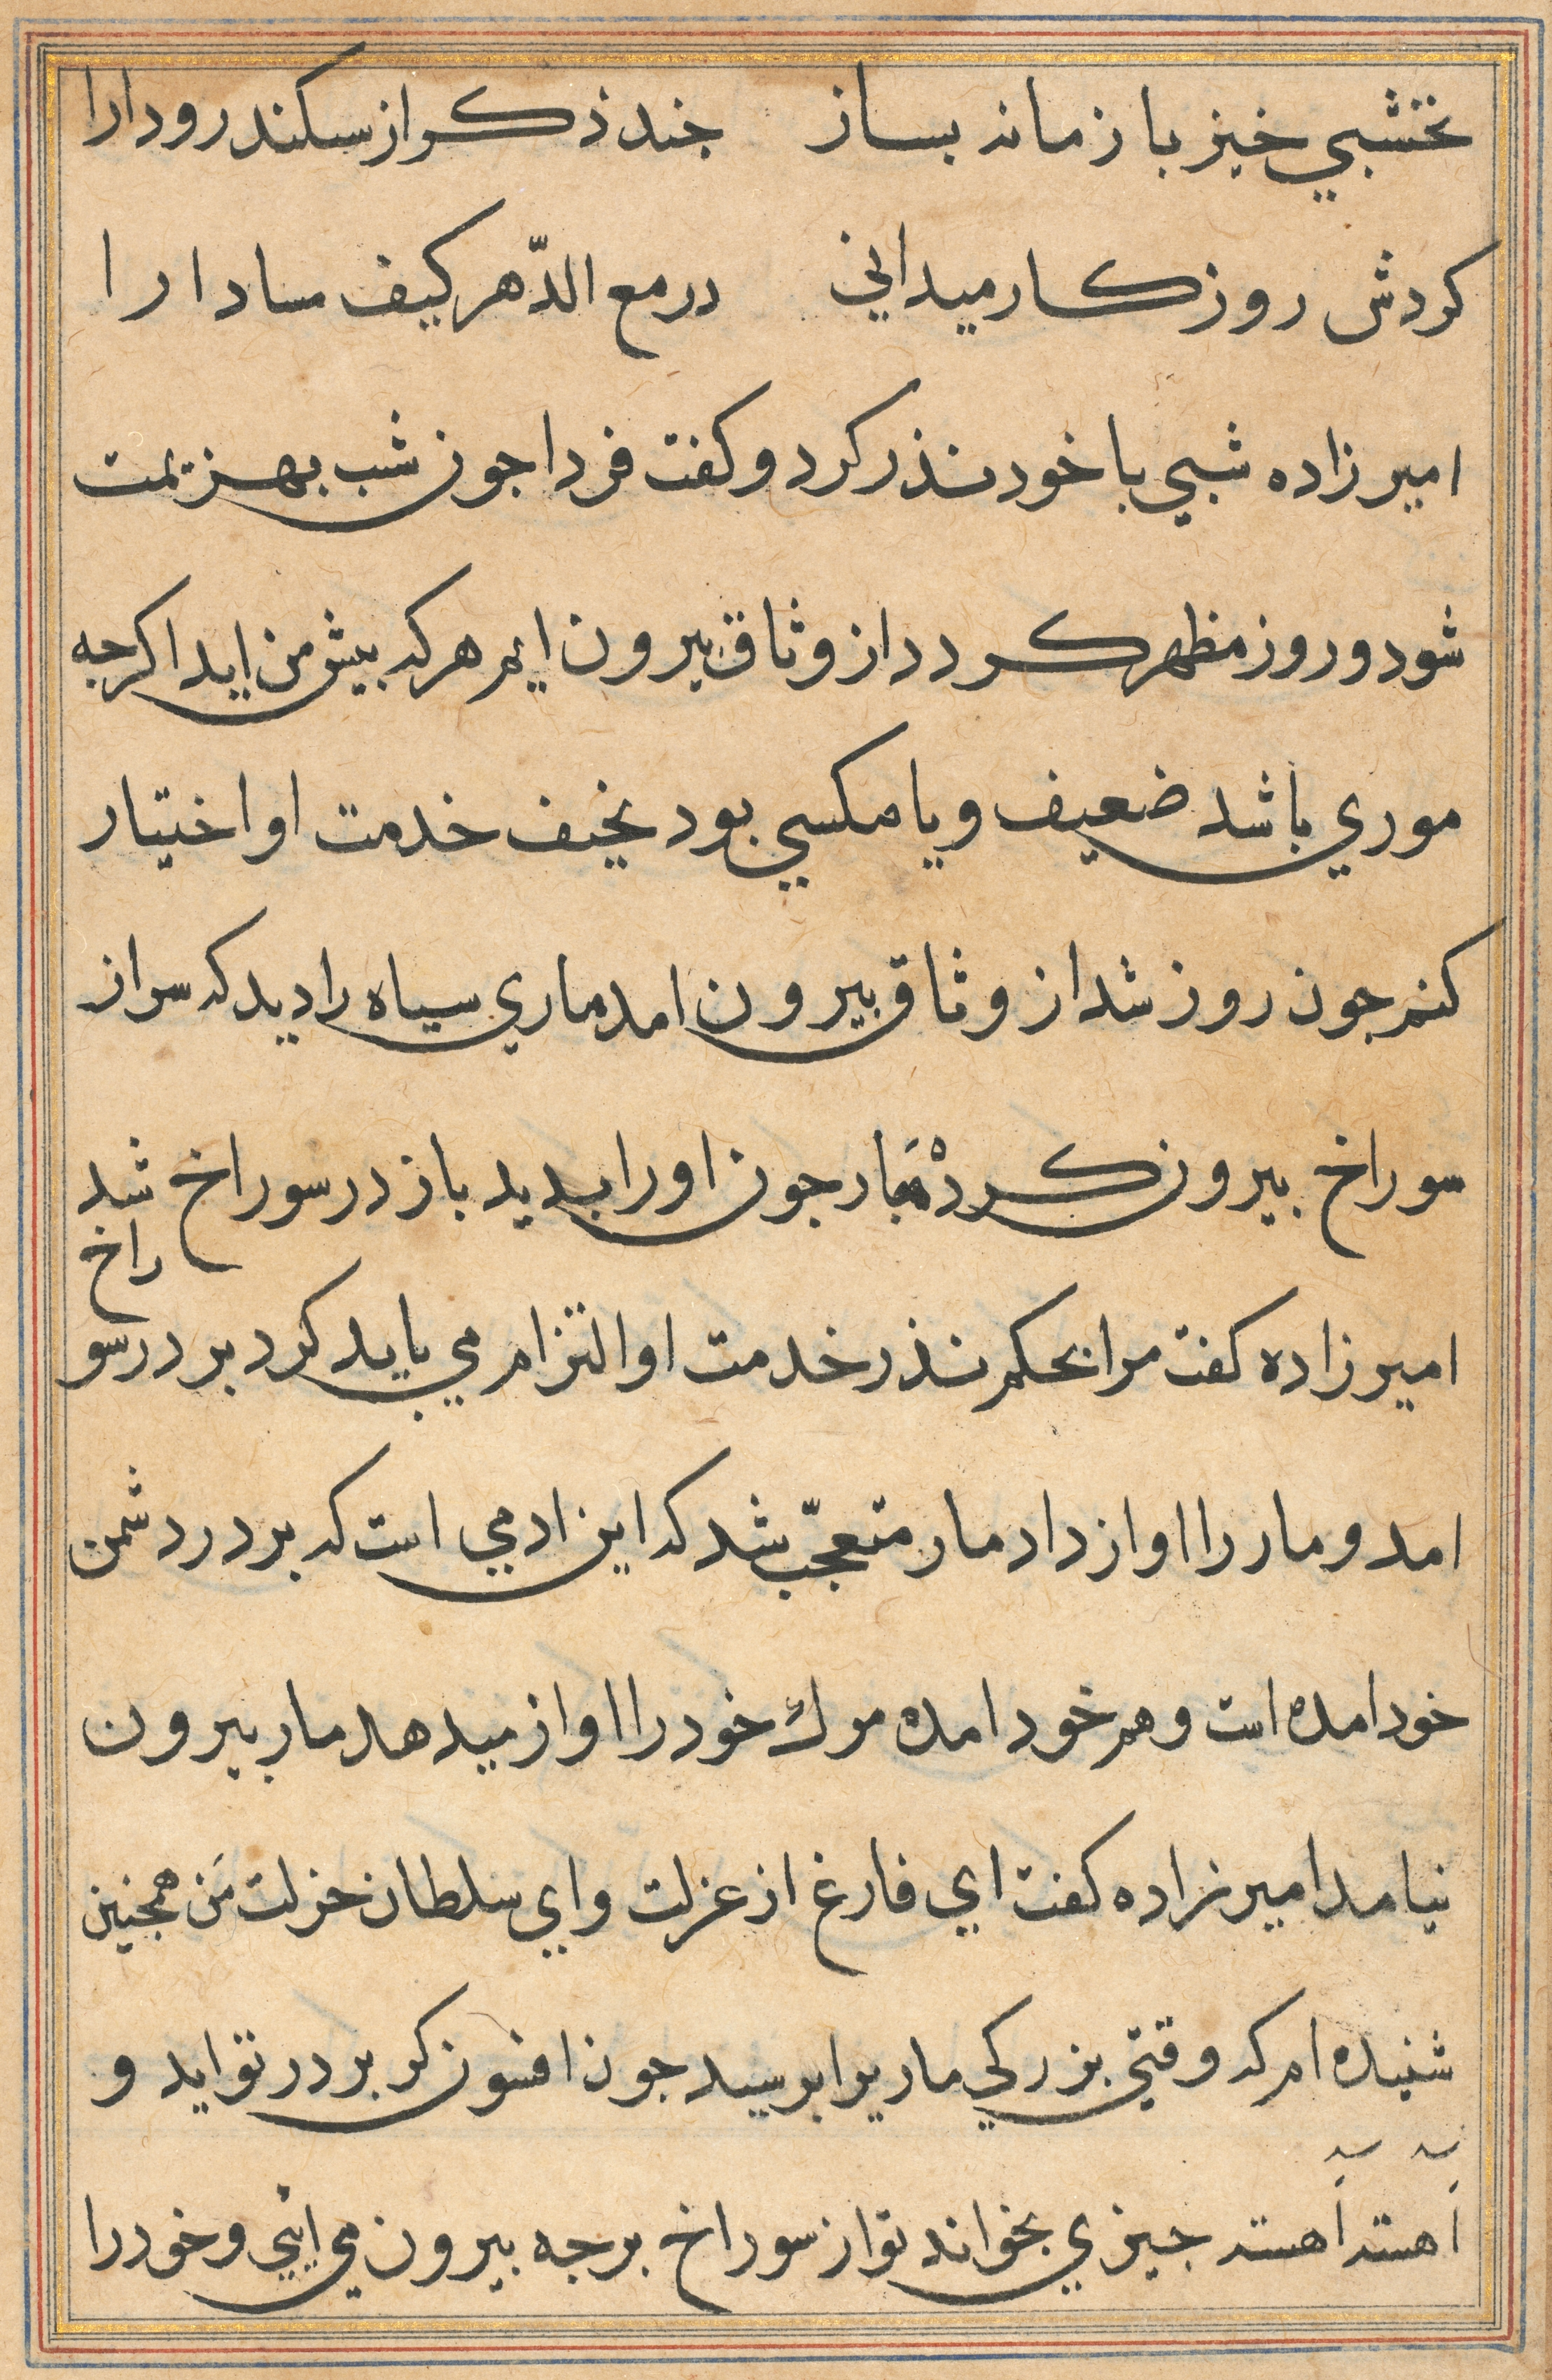 نخشبي خيز با زمانه بساز جند ذكر از سكندر و دارا
كردش روزكار ميداني در مع الدّهر كيف مسا دارا
امير زاده شبي با خود نذر كرد و كفت فردا جون شب بهزيمت
شود و روز مظهر كردد از وثاق بيرون ايم هر كه بيش من ايد اكرجه
موري باشد ضعيف و يا مكسي بود نخيف خدمت او اختيار
كنم جون روز شد از وثاق بيرون امد ماري سياه را ديد كه سر از
سوراخ بيرون كرده مار جون او را بديد باز در سوراخ شد
امير زاده كفت مرا بحكم نذر خدمت او التزام مي بايد كرد بر در سوراخ
امد و مار را اواز داد مار متعجّب شد كه اين ادمي است كه بر در دشمن
خود امده است و هم خود امده مرك خود را اواز ميدهد مار بيرون
نيامد امير زاده كفت اي فارغ از عزلت و اي سلطان خزلت من همجنين
شنيده ام كه وقتي بزركي ماريرا برسيد جون افسون كر بر در تو ايد و
اهسته اهسته جيزي بخواند تو از سوراخ برجه بيرون مي ايي و خود را